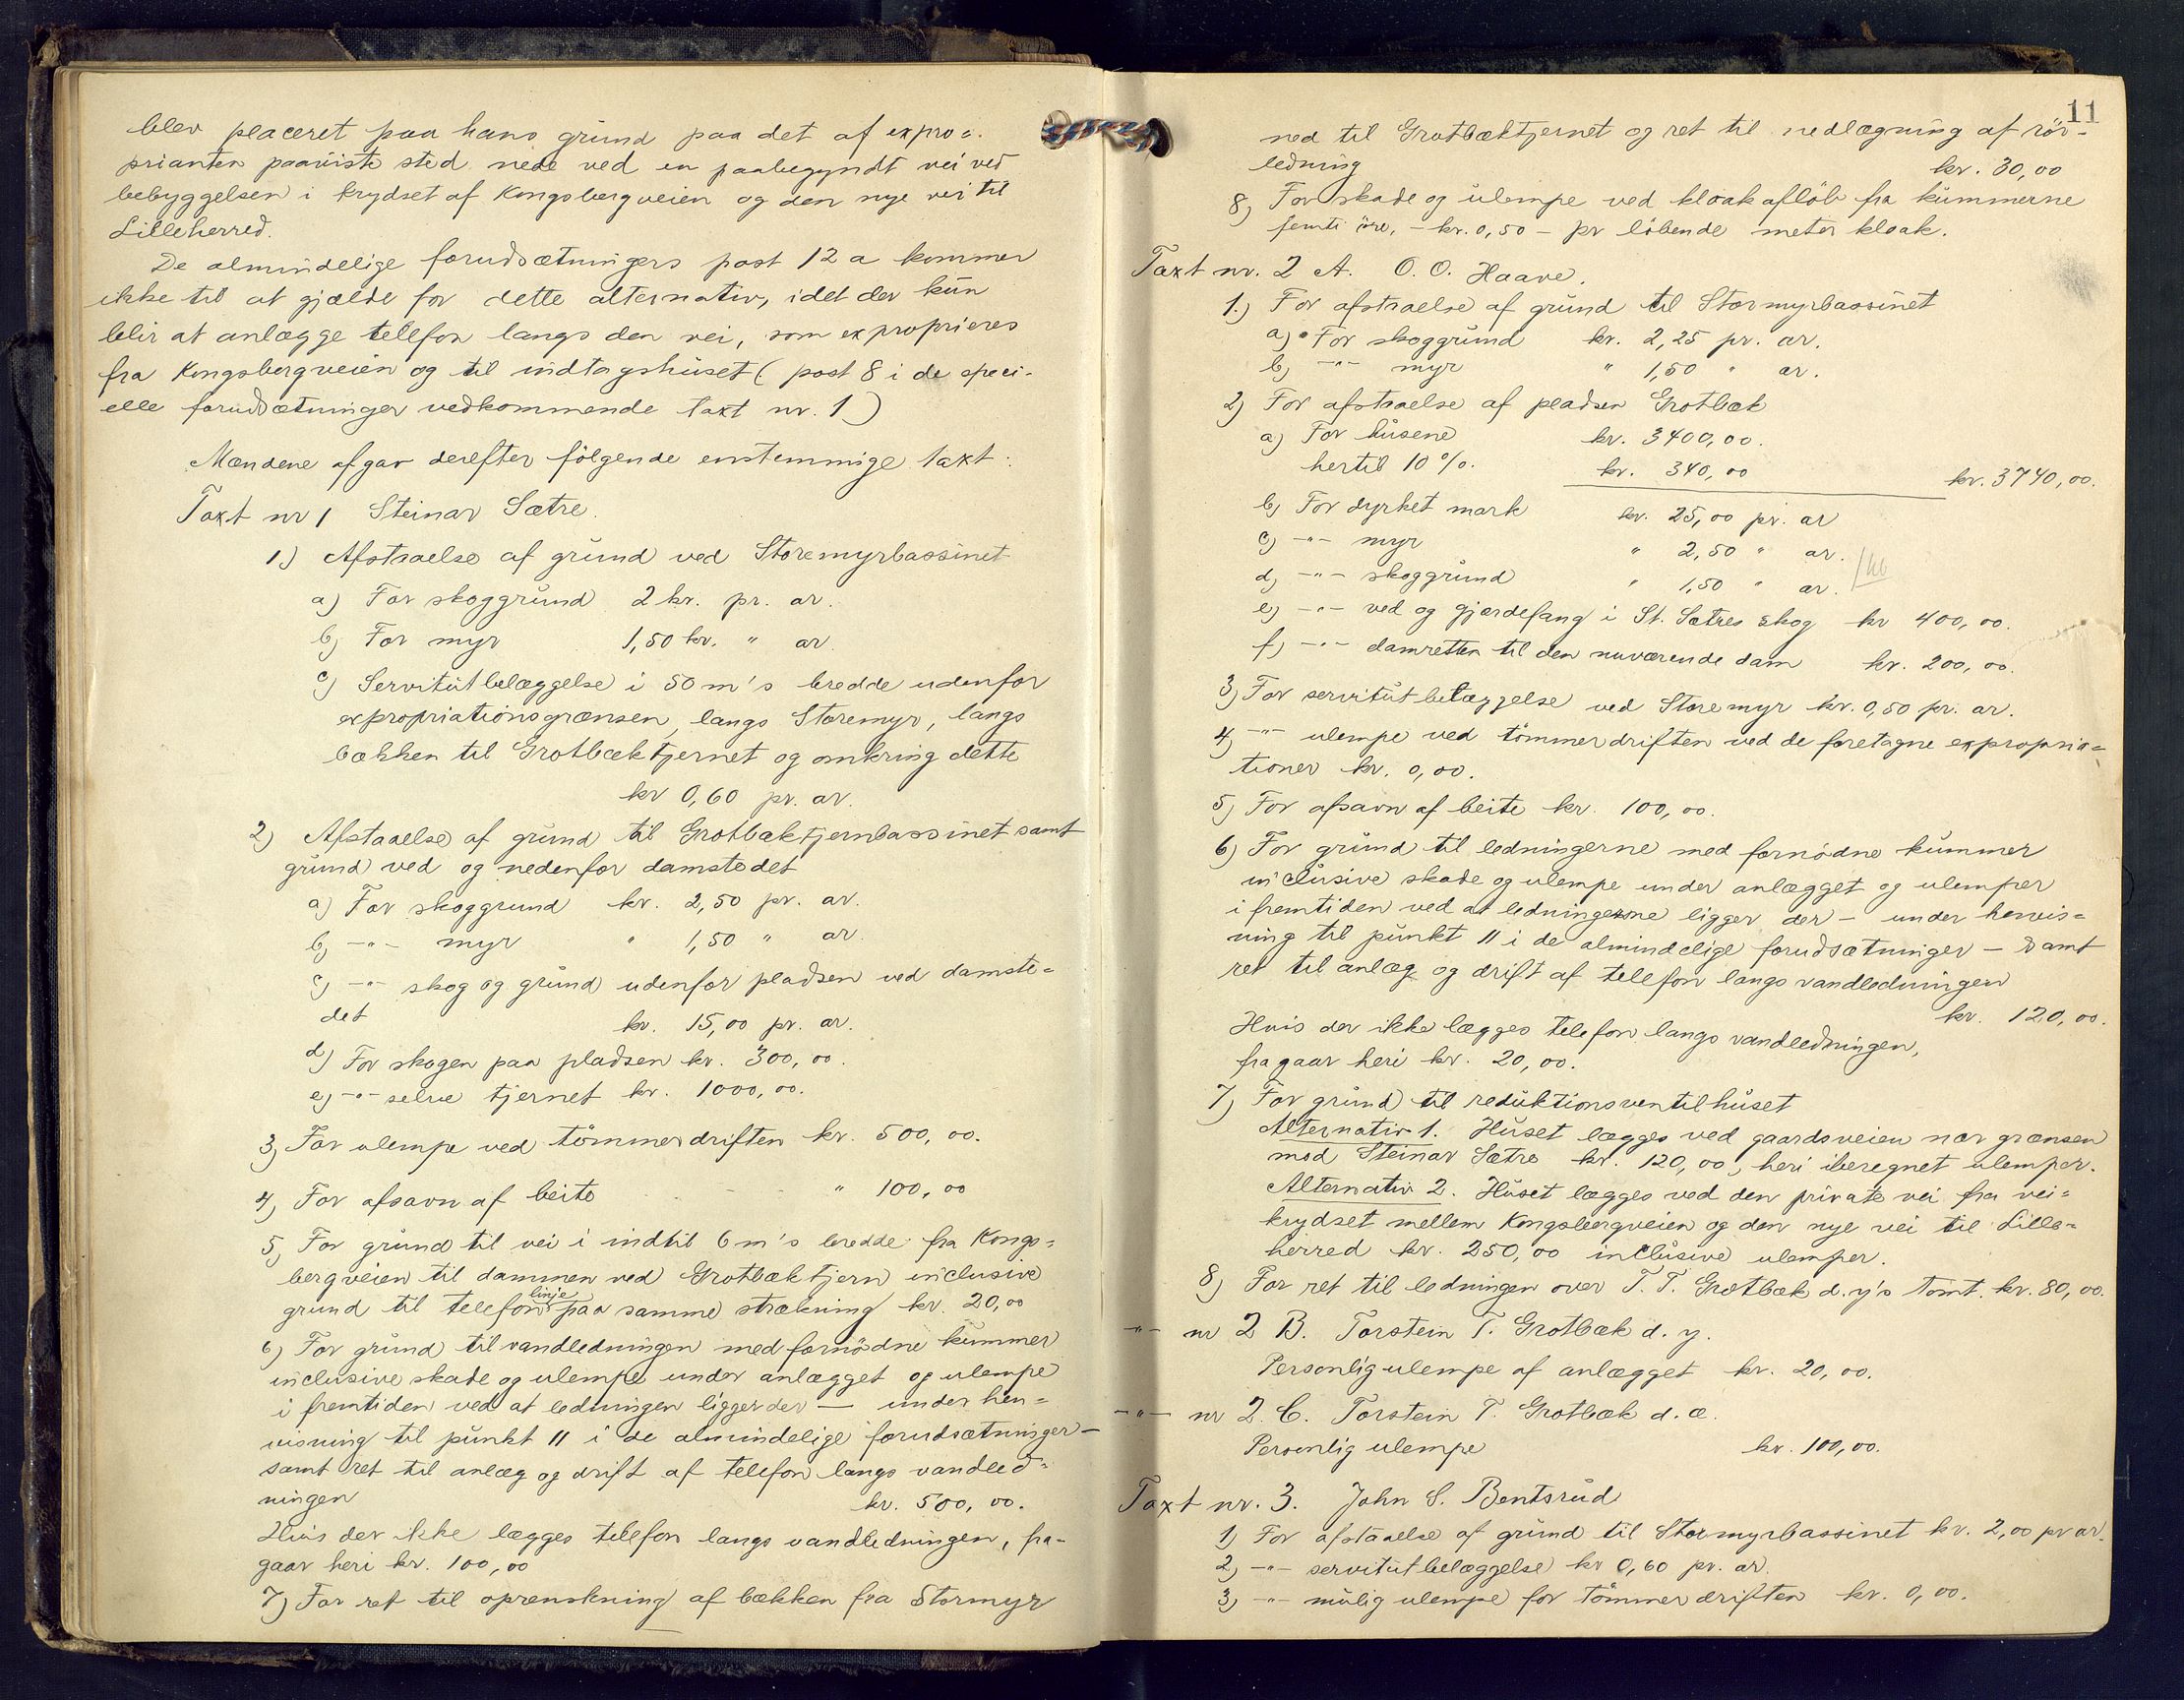 blev placeret paa hans grund paa det af expro=
prianten paaviste sted nede ved en paabegyndt vei ved
bebyggelsen i krydset af Kongsbergveien og den nye vei til
Lilleherred.
De almindelige forudsætningers post 12 a kommer
ikke til at gjælde for dette alternativ, idet der kun
blir at anlægge telefon langs den vei, som exproprieres
fra Kongsbergveien og til indtagshuset (post 8 i de speci-
elle forudsætninger vedkommende taxt nr. 1)
Mændene afgav derefter følgende enstemmige taxt:
Taxt nr 1 Steinar Sætre.
1.) Afstaaelse af grund ved Storemyrbassinet
a) For skoggrund 2 kr. pr. ar.
b) For myr 1,50 kr. " ar.
c) Servitutbelæggelse i 50 m's bredde udenfor
expropriationsgrænsen, langs Storemyr, langs
bækken til Grotbæktjernet og omkring dette
kr 0,60 pr. ar.
2) Afstaaelse af grund til Grotbæktjernbassinet samt
grund ved og nedenfor damstedet
a) For skoggrund kr. 2,50 pr. ar.
b) -"- myr " 1,50 " ar.
c) -"- skog og grund udenfor pladsen ved damste=
det kr. 15,00 pr. ar.
d) For skogen paa pladsen kr. 300,00.
e) -"- selve tjernet kr. 1000,00.
3) For ulempe ved tømmerdriften kr. 500,00.
4) For afsavn af beite " 100,00
5) For grund til vei i indtil 6 m's bredde fra Kongs=
bergveien til dammen ved Grotbæktjern inclusive
grund til telefonlinje paa samme strækning kr. 20,00
6) For grund til vandledningen med fornødne kummer
inclusive skade og ulempe under anlægget og ulempe
i fremtiden ved at ledningen ligger der — under hen=
visning til punkt 11 i de almindelige forudsætninger —
samt ret til anlæg og drift af telefon langs vandled=
ningen kr. 500,00.
Hvis der ikke lægges telefon langs vandledningen, fra-
gaar heri kr. 100,00
7) For ret til oprenskning af bækken fra Stormyr
11
ned til Grotbæktjernet og ret til nedlægning af rør-
ledning kr. 30,00
8) For skade og ulempe ved kloakafløb fra kummerne
femti øre, - kr. 0,50 - pr løbende meter kloak.
Taxt nr. 2 A. O. O. Haave.
1.) For afstaaelse af grund til Stormyrbassinet
a) For skoggrund kr. 2,25 pr. ar.
b) -"- myr " 1,50 " ar.
2) For afstaaelse af pladsen Grotbæk
a) For husene kr. 3400,00.
hertil 10 %. kr. 340,00 kr. 3740,00.
b) For dyrket mark kr. 25,00 pr. ar
c) -"- myr " 2,50 " ar.
d) -"- skoggrund " 1,50 " ar.
e) -"- ved og gjærdefang i St. Sætres skog kr 400,00.
f) -"- damretten til den nuværende dam kr. 200,00.
3) For servitutbelæggelse ved Storemyr kr. 0,50 pr. ar.
4) -"- ulempe ved tømmerdriften ved de foretagne expropria=
tioner kr. 0,00.
5) For afsavn af beite kr. 100,00.
6) For grund til ledningerne med fornødne kummer
inclusive skade og ulempe under anlægget og ulemper
i fremtiden ved at ledningerne ligger der — under henvis=
ning til punkt 11 i de almindelige forudsætninger — samt
ret til anlæg og drift af telefon langs vandledningen
kr. 120,00.
Hvis der ikke lægges telefon langs vandledningen,
fragaar heri kr. 20,00.
7) For grund til reduktionsventilhuset
Alternativ 1. Huset lægges ved gaardsveien nær grænsen
mod Steinar Sætre kr. 120,00, heri iberegnet ulemper.
Alternativ 2. Huset lægges ved den private vei fra vei=
krydset mellem Kongsbergveien og den nye vei til Lille=
herred kr. 250,00 inclusive ulemper.
8) For ret til ledningen over T. T. Grotbæk d. y's tomt. kr. 80,00.
-"- nr 2 B. Torstein T. Grotbæk d. y.
Personlig ulempe af anlægget kr. 20,00.
-"- nr 2. C. Torstein T. Grotbæk d. æ.
Personlig ulempe kr. 100,00.
Taxt nr. 3. John S. Bentsrud
1) For afstaaelse af grund til Stormyrbassinet kr. 2,00 pr ar.
2) -"- servitutbelæggelse kr 0,60 pr. ar.
3) -"- mulig ulempe for tømmerdriften kr. 0,00.